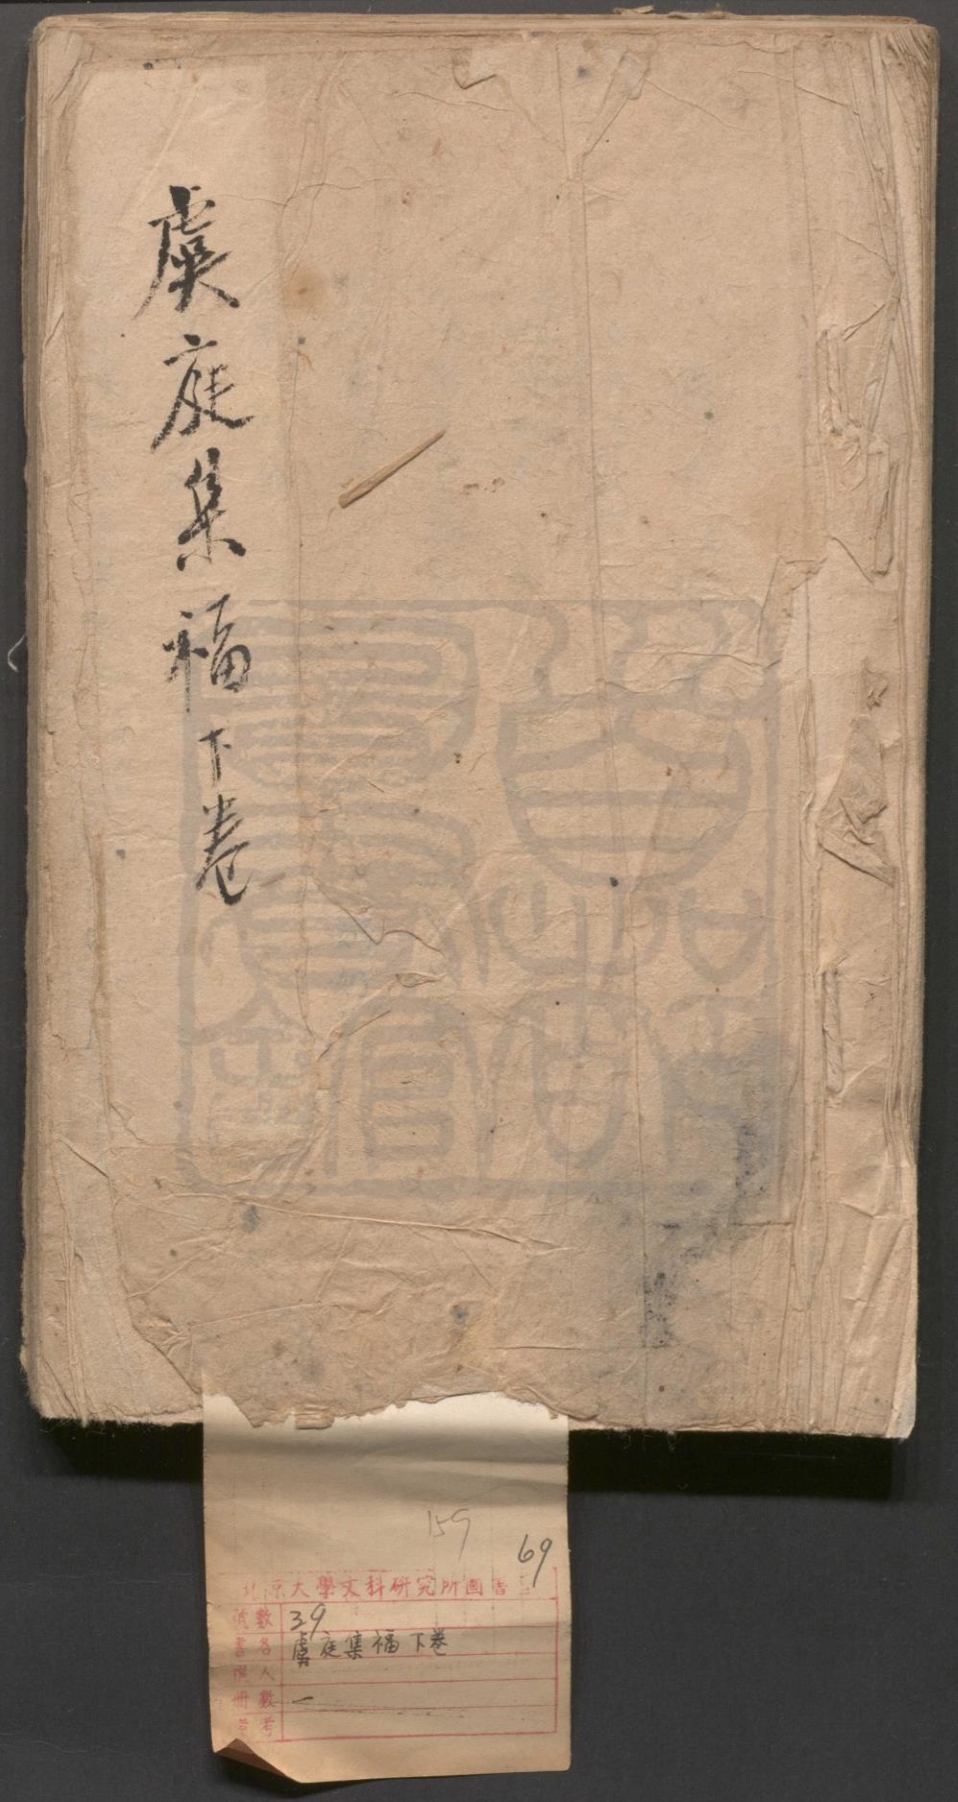 虞庭集福下卷
159
69
北京大學文科研究所圖書
號數 39
書名 虞庭集福下卷
撰人
冊數 一